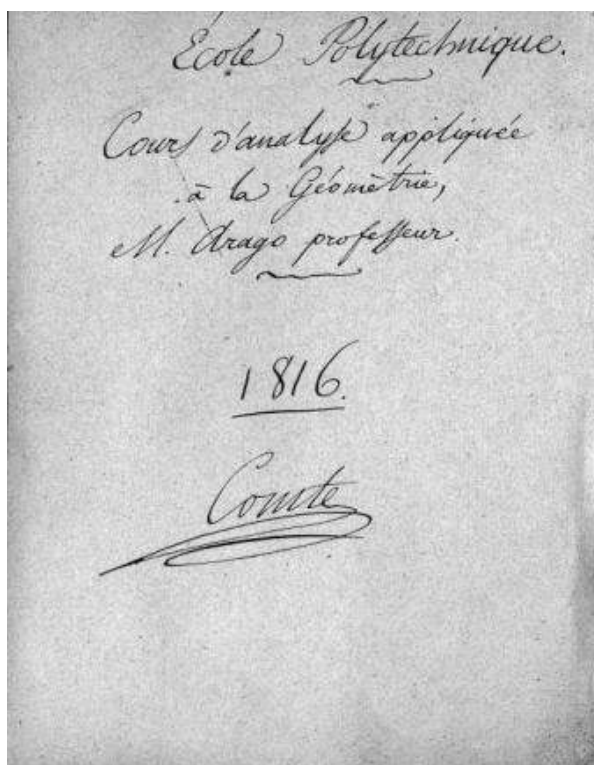 École Polytechnique.
Cours d'analyse appliquée
à la Géométrie,
M. Arago professeur.
1816.
Comte